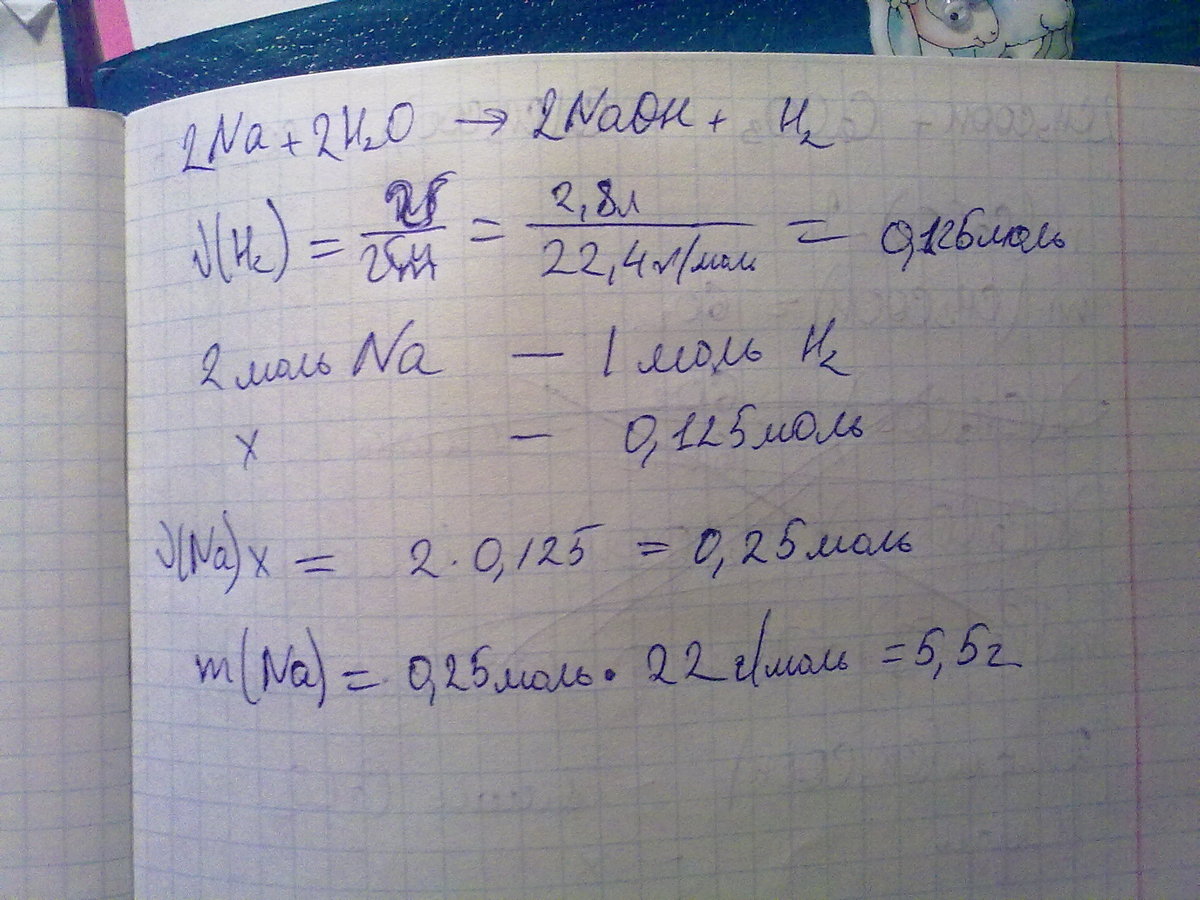 2Na + 2H₂O → 2NaOH + H₂
ν(H₂) = = 2,8л / 22,4 л/моль = 0,125моль
2 моль Na — 1 моль H₂
x — 0,125моль
ν(Na) x = 2 · 0,125 = 0,25моль
m(Na) = 0,25моль · 22 г/моль = 5,5г